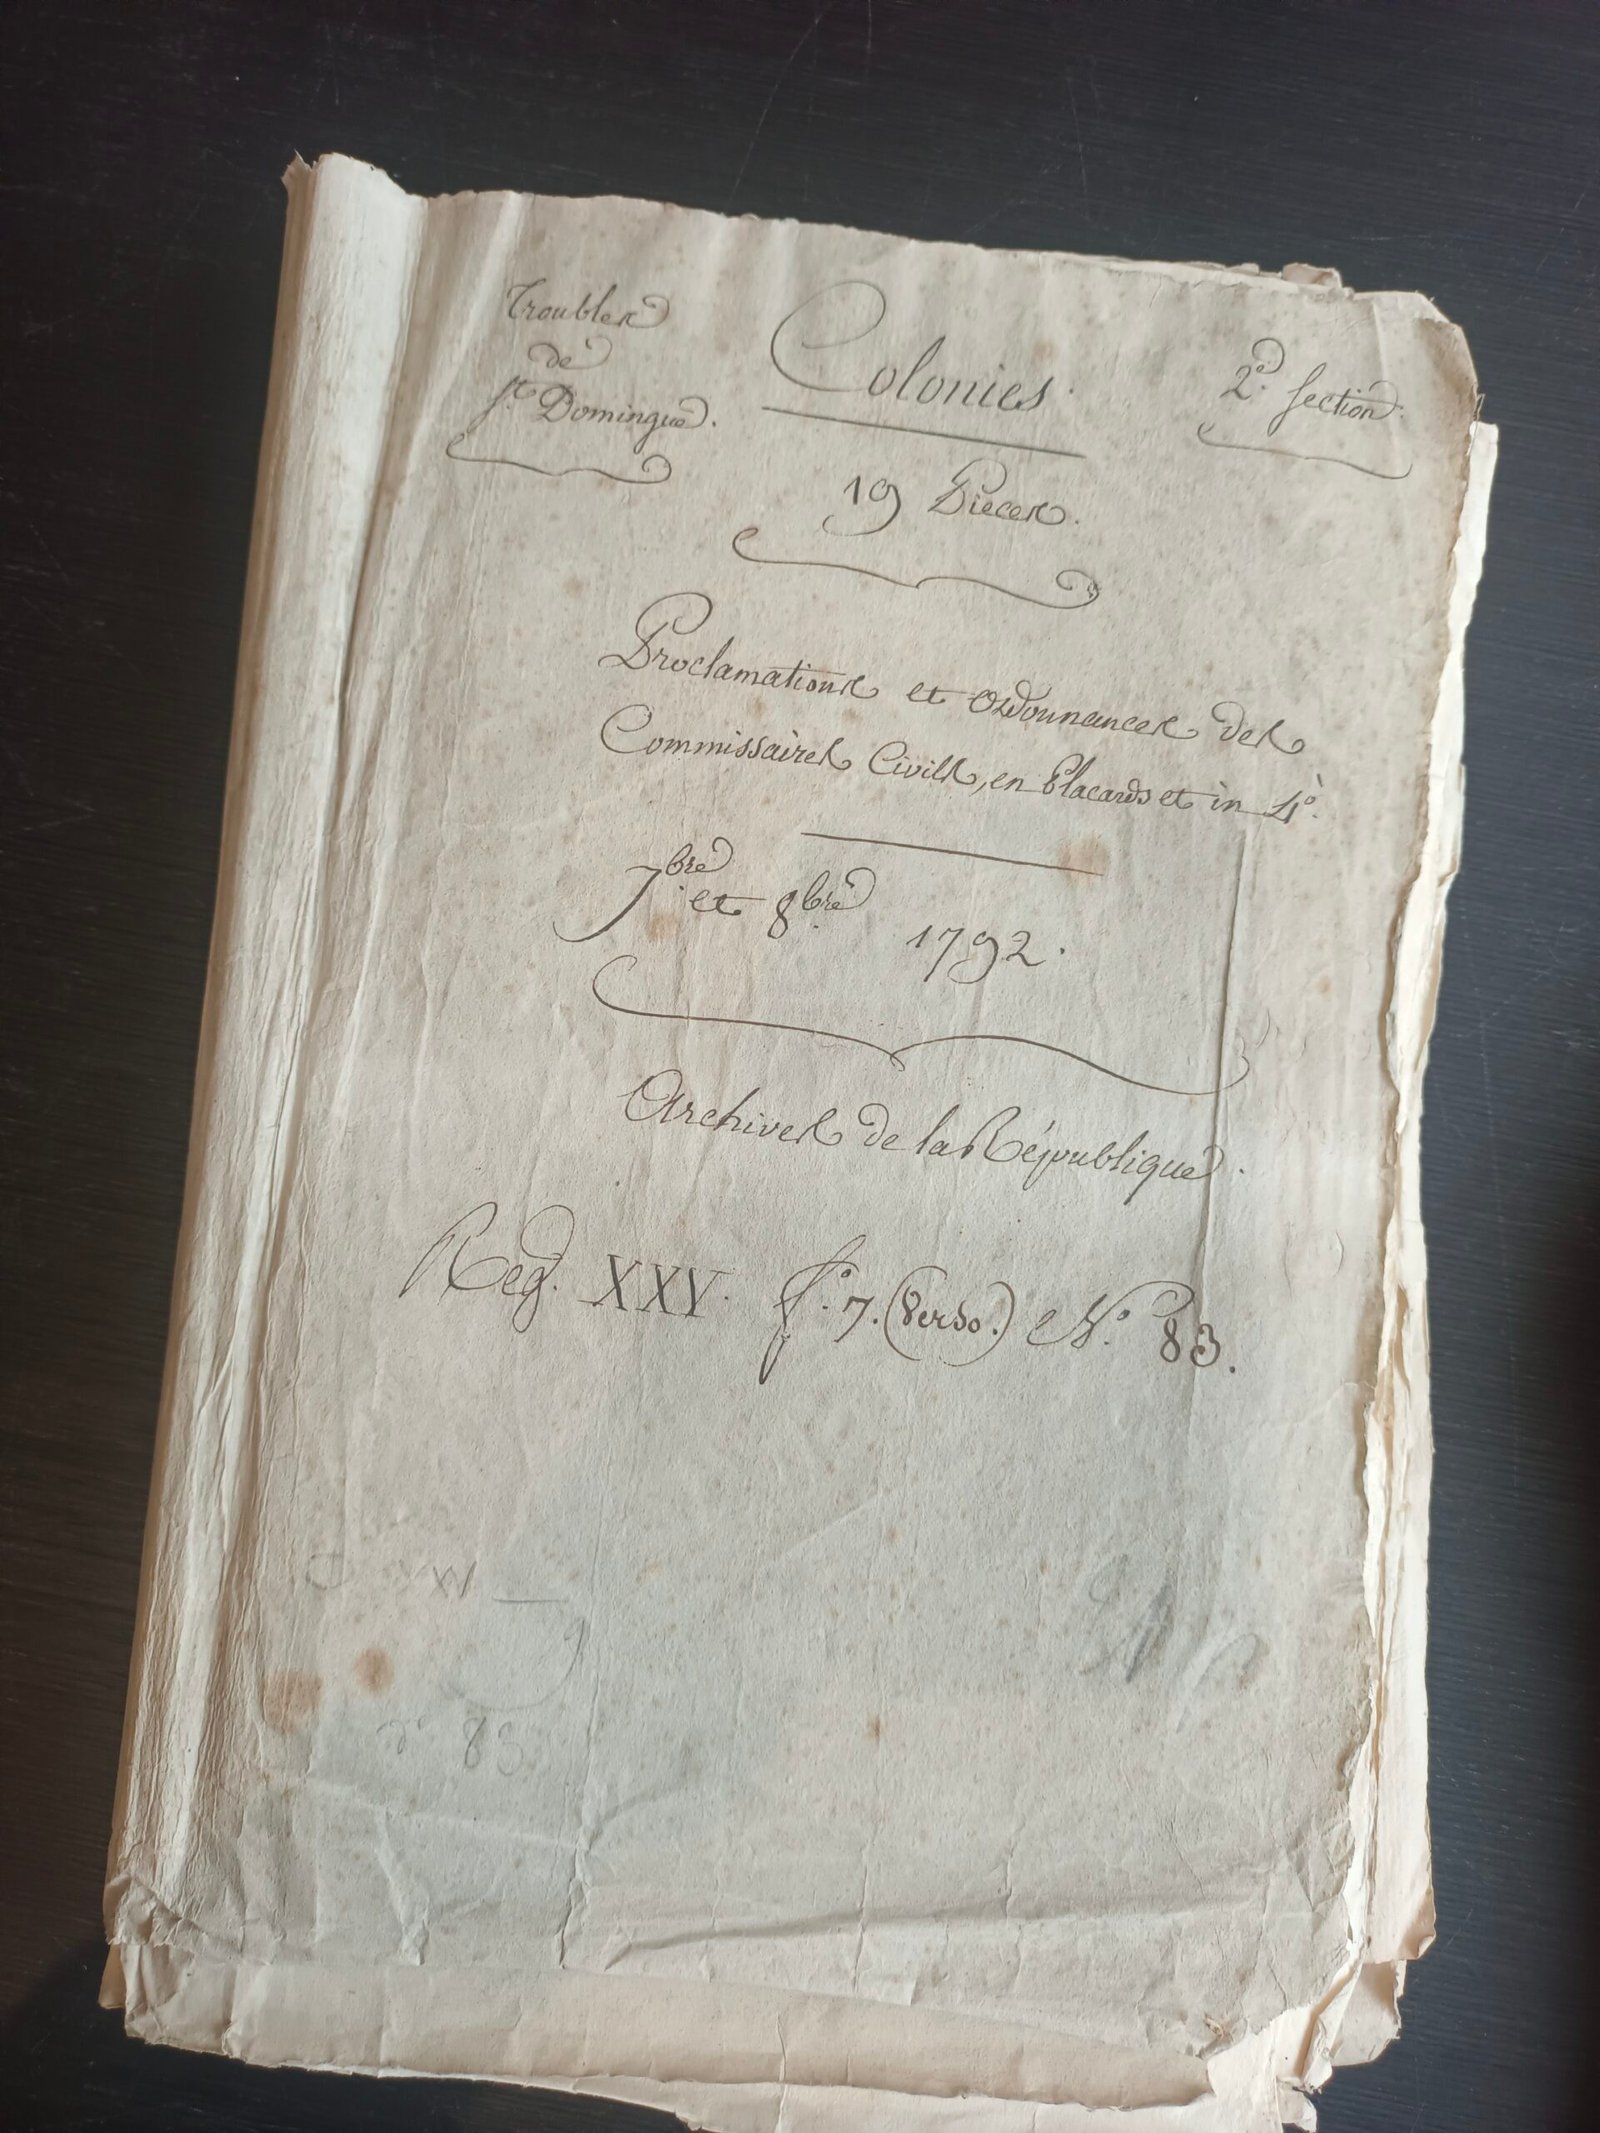 Troubles
de
St. Domingue.
Colonies.
2e. Section.
19 Pieces.
Proclamations et Ordonnances des
Commissaires Civils, en Placards et in 4o.
7bre. et 8bre. 1792.
Archives de la République.
Reg. XXV. fo. 7. (Verso.) No. 83.
83